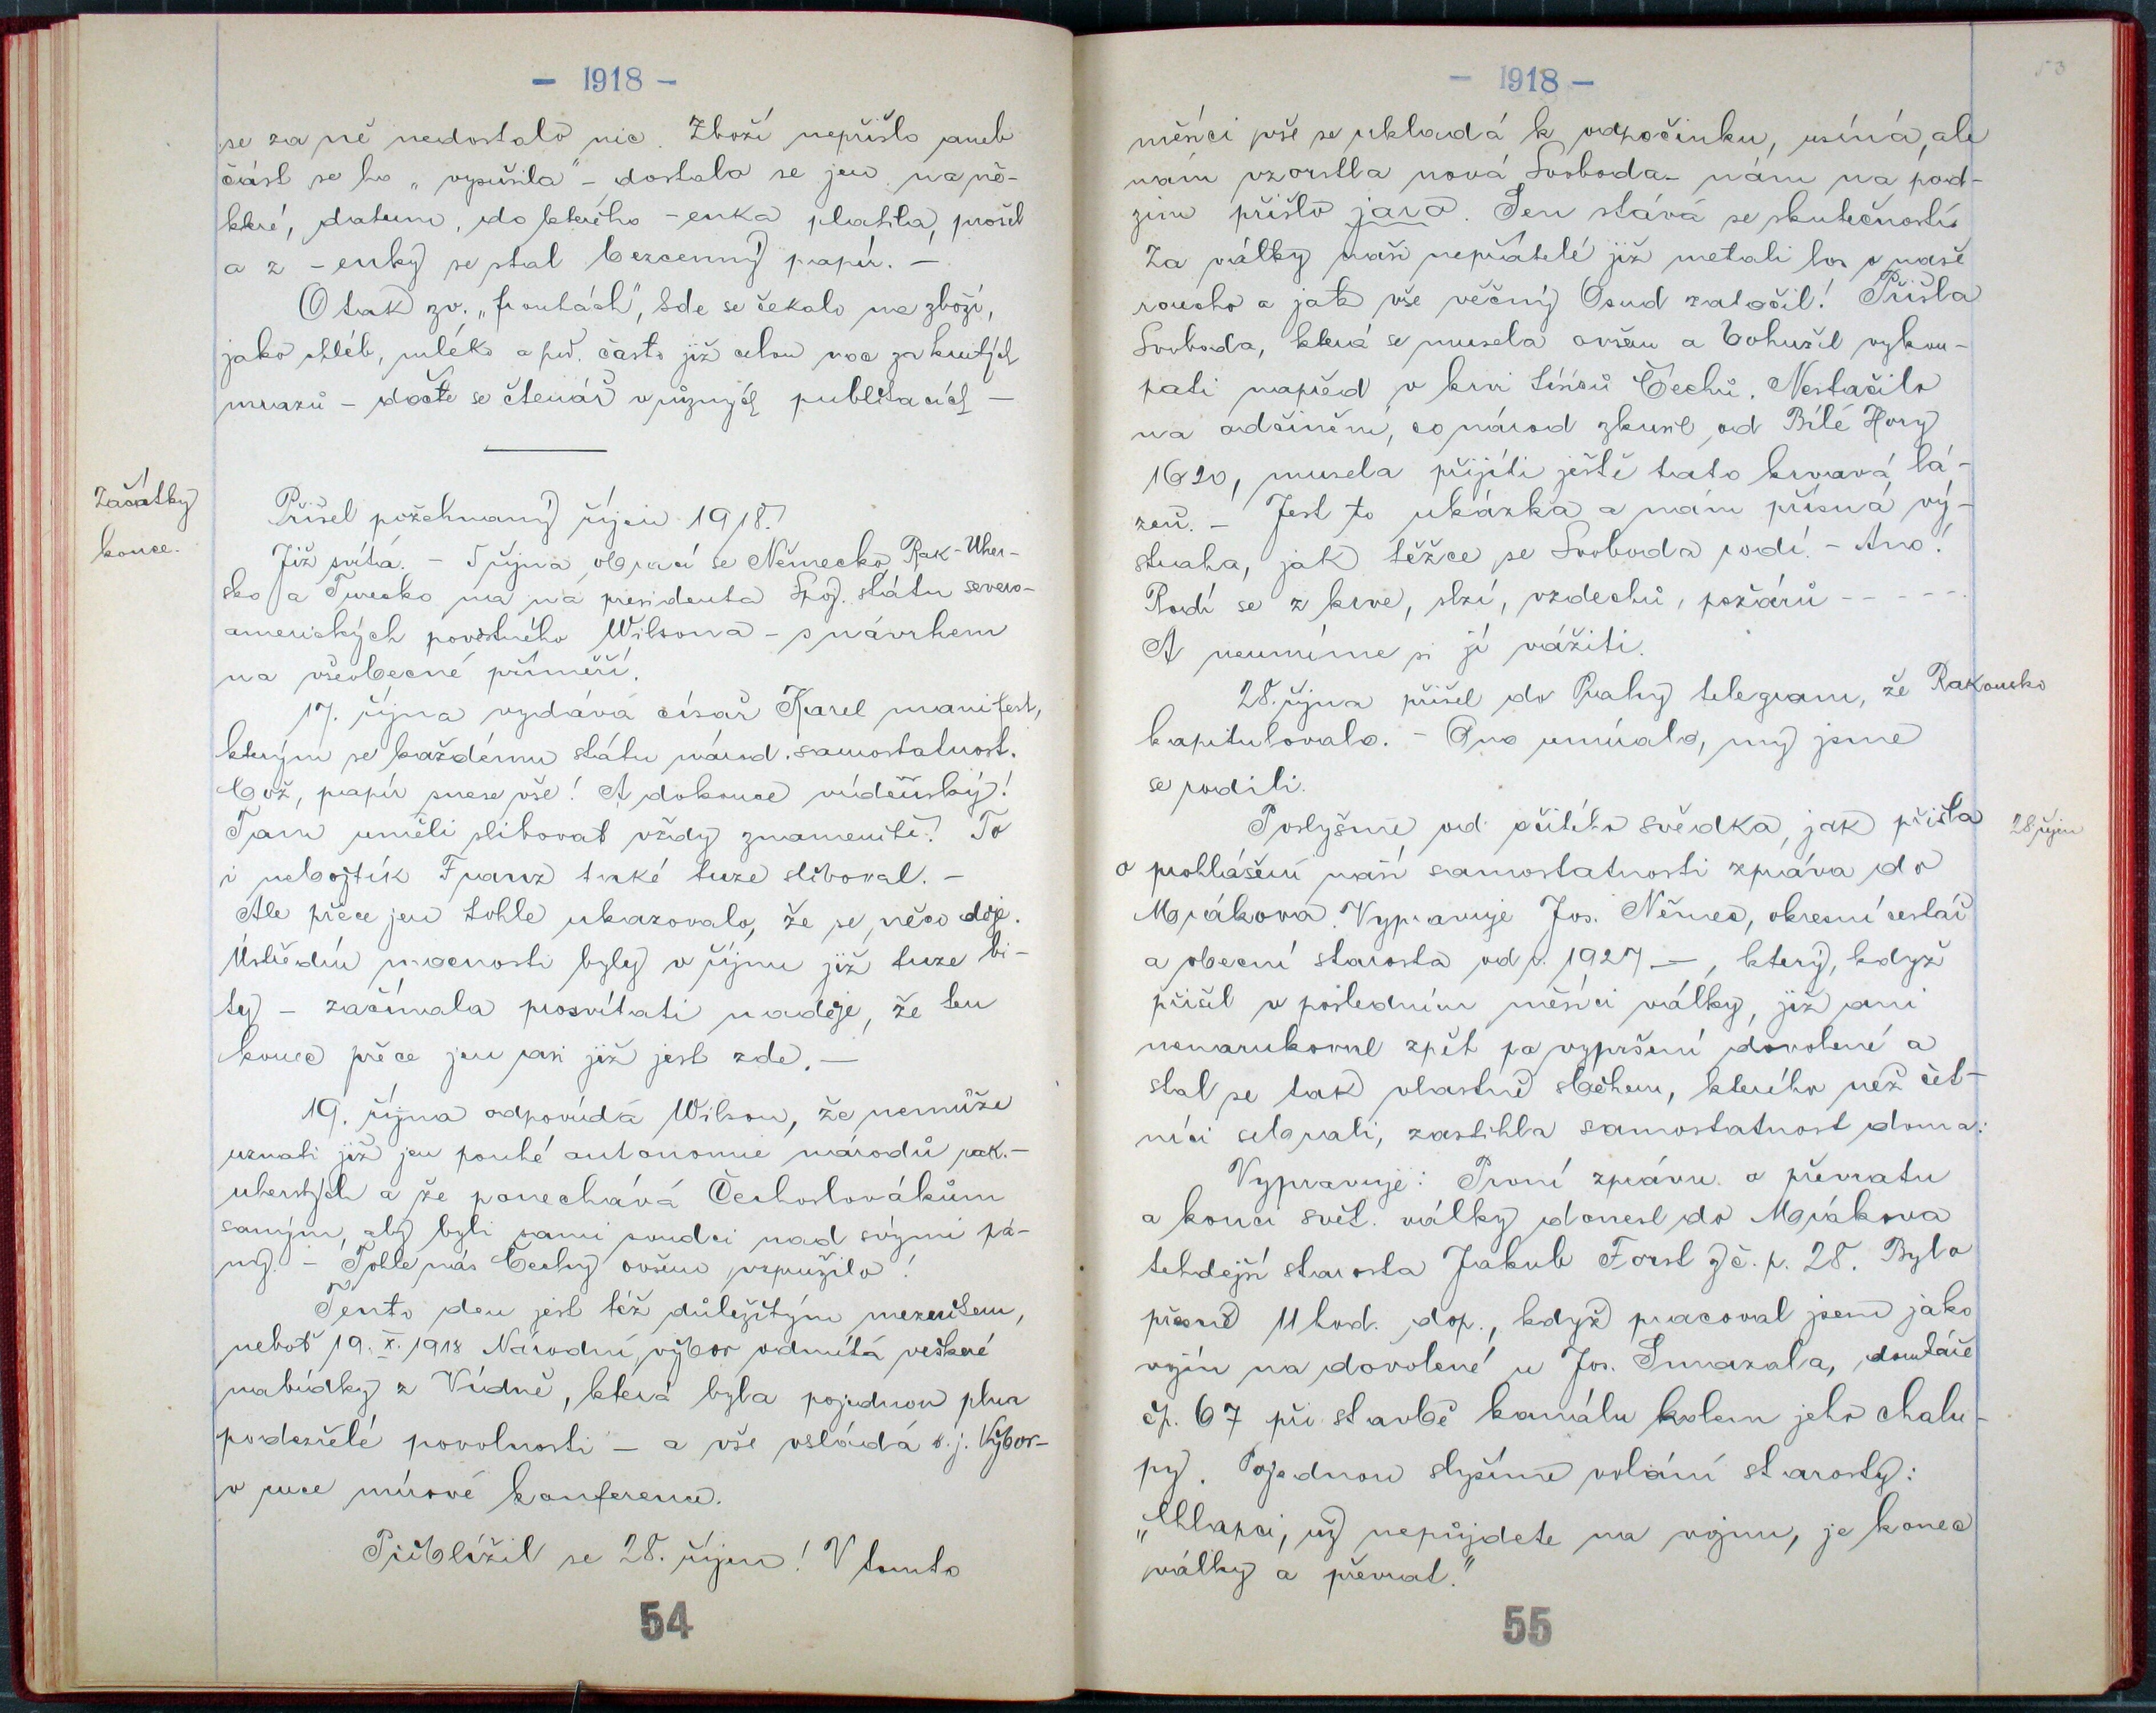 - 1918 -
se za ně nedostalo nic. Zboží nepřišlo aneb
část se ho „vysušila" - dostala se jen na ně-
které, datum, do kterého -enka platila, prošel
a z -enky se stal bezcenný papír. -
O tak zv. „frontách", kde se čekalo na zboží,
jako chléb, mléko a pod. často již celou noc za krutých
mrazů - dočte se čtenář v různých publikacích -
Začátky
konce.
Přišel požehnaný říjen 1918!
Již svítá. - 5 října obrací se Německo, Rak-Uher-
sko a Turecko na na presidenta Spoj. států severo-
amerických pověstného Wilsona - s návrhem
na všeobecné příměří.
17. října vydává císař Karel manifest,
kterým se každému státu národ. samostatnost.
Což, papír snese vše! A dokonce vídeňský!
Tam uměli slibovat vždy znamenitě! To
i nebožtík Franz také tuze sliboval. -
Ale přece jen tohle ukazovalo, že se něco děje.
Ústřední mocnosti byly v říjnu již tuze bi-
ty - začínala prosvítati naděje, že ten
konec přece jen asi již jest zde. -
19. října odpovídá Wilson, že nemůže
uznati již jen pouhé autonomie národů rak.-
uherských a že ponechává Čechoslovákům
samým, aby byli sami soudci nad svými pá-
ny. - Tohle nás Čechy ovšem vzpružilo!
Tento den jest též důležitým mezníkem,
neboť 19. X. 1918 Národní výbor odmítá veškeré
nabídky z Vídně, která byla pojednou plna
podezřelé povolnosti - a vše vkládá t. j. Výbor-
v ruce mírové konference.
Přiblížil se 28. říjen! V tomto
54
- 1918 -
53
měsíci vše se ukládá k odpočinku, usíná, ale
nám vzrostla nová Svoboda - nám na pod-
zim přišlo jaro. Sen stává se skutečností.
Za války naši nepřátelé již metali los o naše
roucho a jak vše věčný Osud zatočil! Přišla
Svoboda, která se musela ovšem a bohužel vykou-
pati napřed v krvi tisíců Čechů. Nestačilo
na odčinění, co národ zkusil od Bílé Hory
1620, musela přijíti ještě tato krvavá lá-
zeň. - Jest to ukázka a nám přísná vý-
straha, jak těžce se Svoboda rodí. - Ano!
Rodí se z krve, slzí, vzdechů, požárů - - - - -
A neumíme si jí vážiti.
28. října přišel do Prahy telegram, že Rakousko
kapitulovalo. - Ono umíralo, my jsme
se rodili.
28. říjen
Poslyšme od očitého svědka, jak přišla
o prohlášení naší samostatnosti zpráva do
Mrákova. Vypravuje Jos. Němec, okresní cestář
a obecní starosta od r. 1927 -, který, když
přišel v posledním měsíci války, již ani
nenarukoval zpět po vypršení dovolené a
stal se tak vlastně sběhem, kterého než čet-
níci sebrali, zastihla samostatnost doma:
Vypravuje: První zprávu o převratu
a konci svět. války donesl do Mrákova
tehdejší starosta Jakub Forst z č. p. 28. Bylo
přesně 11 hod. dop., když pracoval jsem jako
vojín na dovolené u Jos. Smazala, domkáře
čp. 67 při stavbě kanálu kolem jeho chalu-
py. Pojednou slyšíme volání starosty:
„Chlapci, už nepůjdete na vojnu, je konec
války a převrat."
55